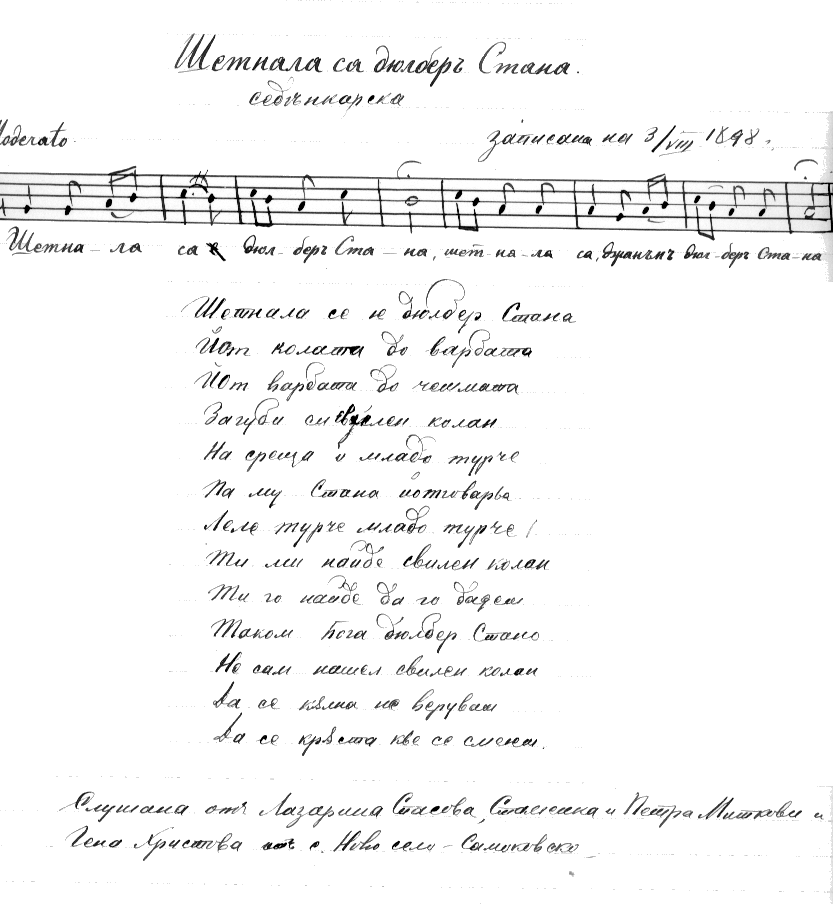 Шетнала са дюлберъ Стана.
седѣнкарска
Moderato.
записана на 3/VIII 1898 г.
Шетна – ла са е дюл – беръ Ста – на, шет – на – ла са, джанъмъ дюл – беръ Ста – на
Шетнала се ѝ дюлбер Стана
Йот колата до варбата
Йот варбата до чешмата
Загуби си свилен колан
На среща ѝ младо турче
Па му Стана йотговаря
Леле турче младо турче!
Ти ли найде свилен колан
Ти го найде да го дадеш
Таком Бога дюлбер Стано
Не сам нашел свилен колан
Да се кълна не веруваш
Да се кръста кье се смееш.
Слушана отъ Лазарина Спасова, Стаменка и Петра Миткови и
Гена Христова отъ с. Ново село – Самоковско